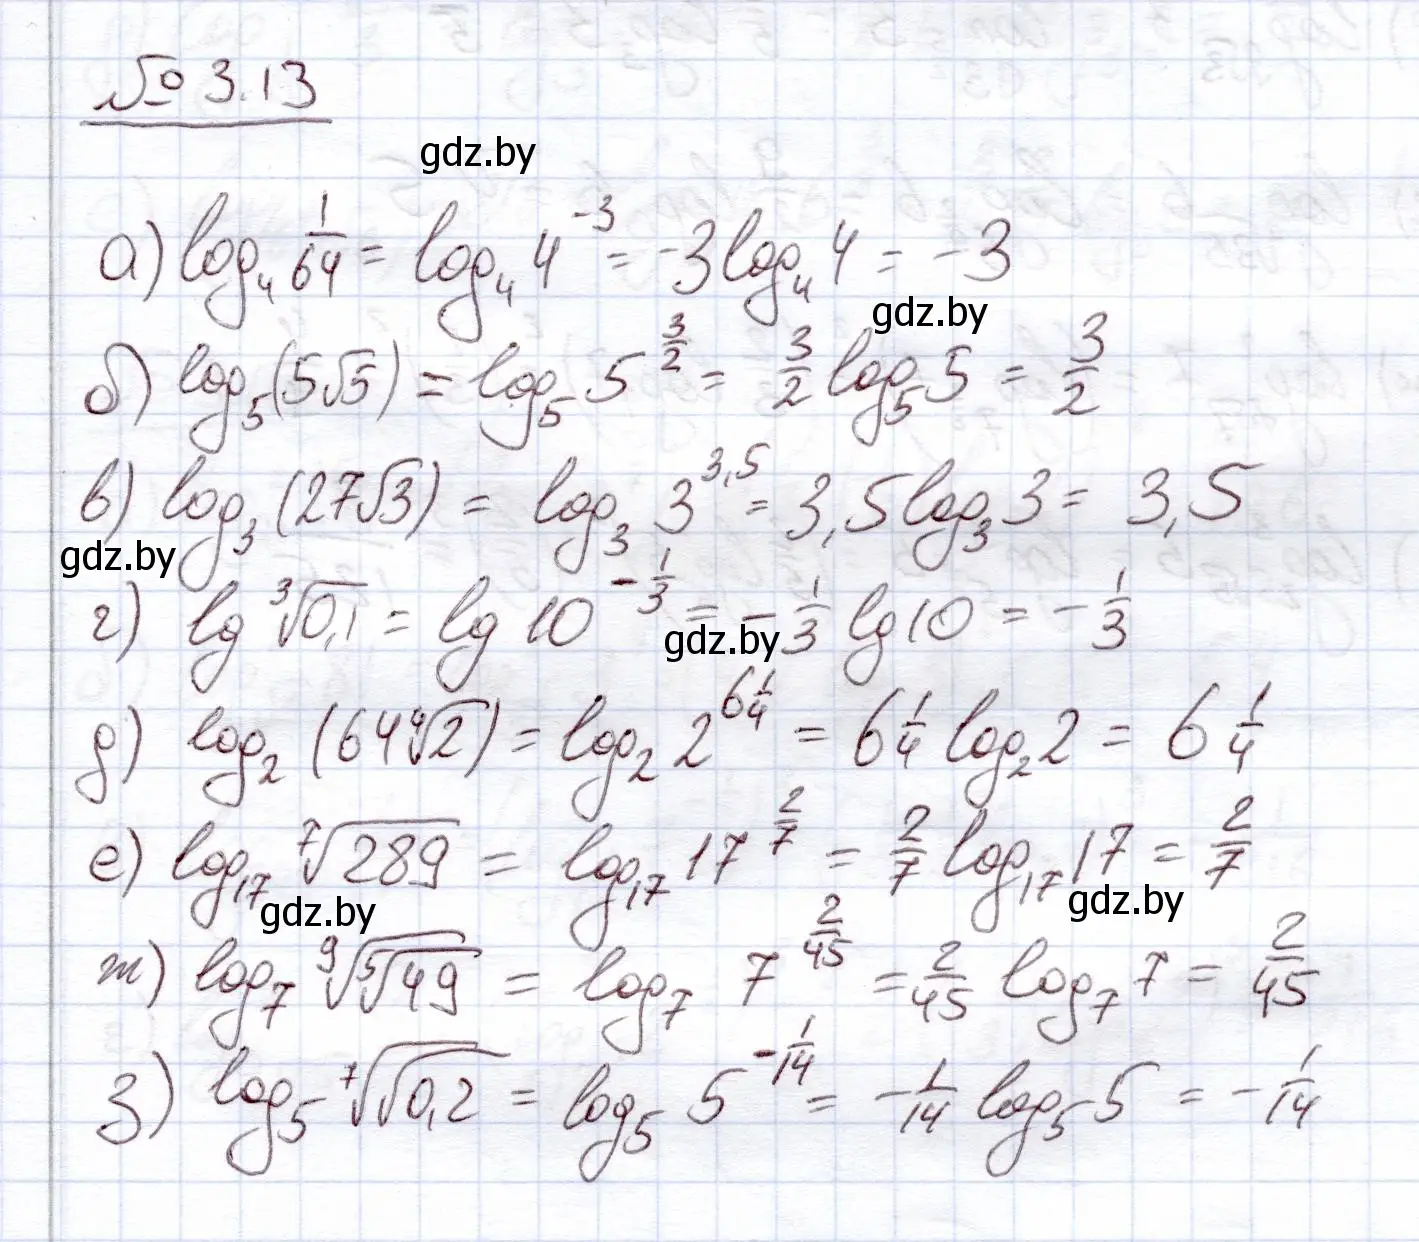 № 3.13
gdz.by
а) log₄ 1/64 = log₄ 4⁻³ = -3 log₄ 4 = -3
gdz.by
б) log₅(5√5) = log₅ 5^(3/2) = 3/2 log₅ 5 = 3/2
в) log₃(27√3) = log₃ 3^(3,5) = 3,5 log₃ 3 = 3,5
gdz.by
г) lg ∛0,1 = lg 10^(-1/3) = -1/3 lg 10 = -1/3
gdz.by
д) log₂(64 ∜2) = log₂ 2^(6 1/4) = 6 1/4 log₂ 2 = 6 1/4
е) log₁₇ ⁷√289 = log₁₇ 17^(2/7) = 2/7 log₁₇ 17 = 2/7
gdz.by gdz.by
ж) log₇ ⁹√(⁵√49) = log₇ 7^(2/45) = 2/45 log₇ 7 = 2/45
з) log₅ ⁷√(√0,2) = log₅ 5^(-1/14) = -1/14 log₅ 5 = -1/14